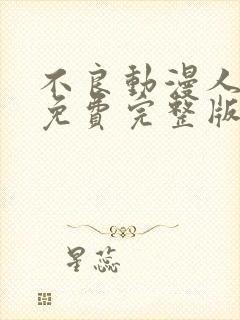 不良動漫人
免費完整版
星蕊